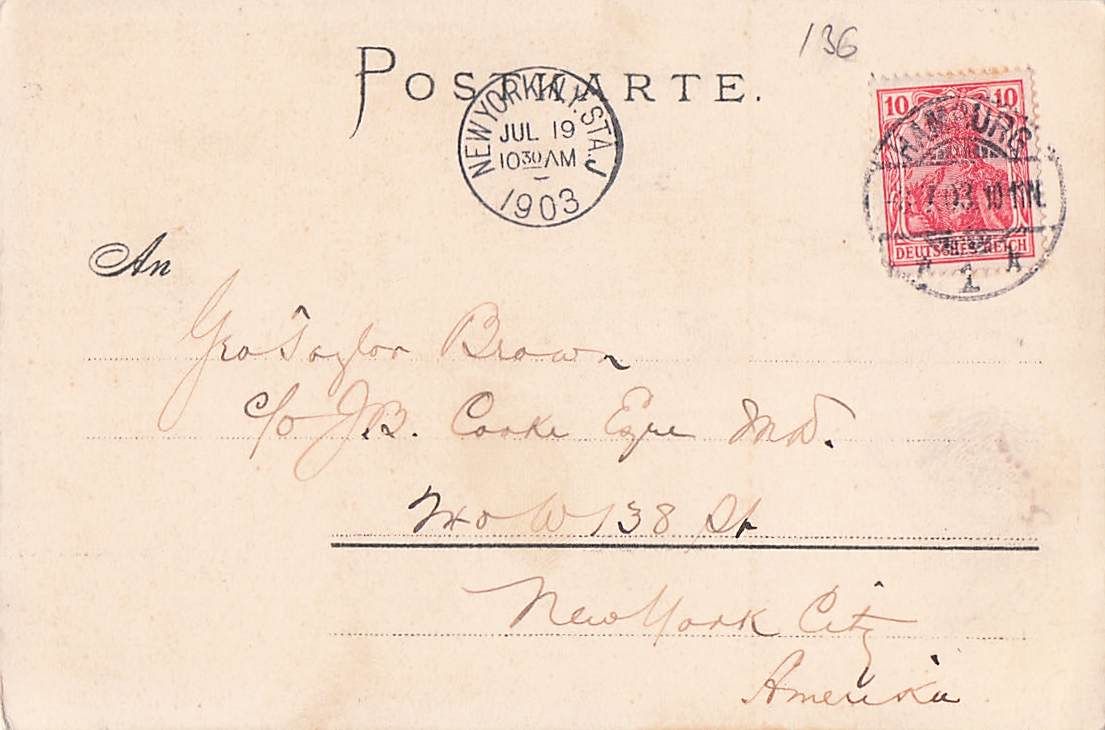 136
POSTKARTE.
NEW YORK, N.Y. STA. J
JUL 19
10 30 AM
1903
10 10
HAMBURG
7.03. 10-11 N.
DEUTSCHES REICH
1
An
Geo Taylor Brown
c/o J.B. Cooke Esqre
W 138 St
New York City
Amerika